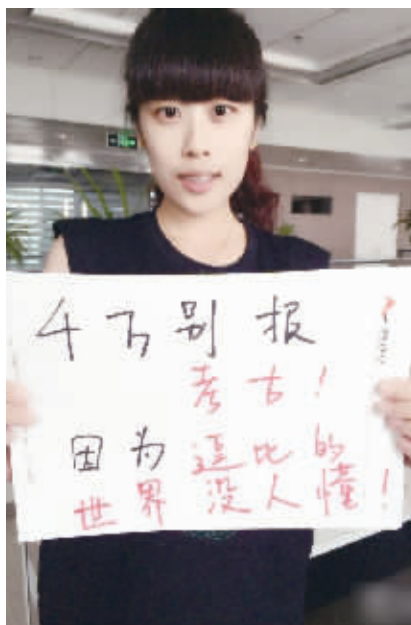 千万别报
考古！
因为逗比的
世界没人懂！